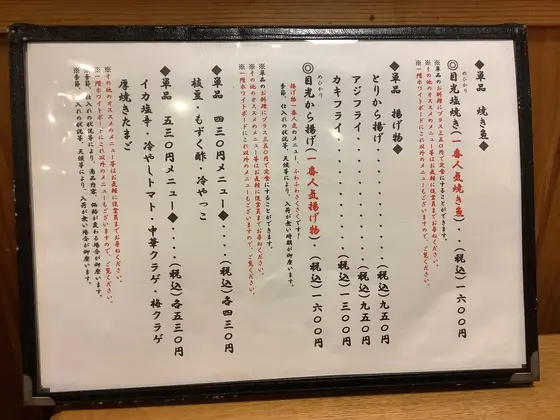 ◆単品 焼き魚◆
めひかり
◎目光塩焼き(一番人気焼き魚)・・(税込)一六〇〇円
※単品のお料理にプラス五五〇円で定食にすることができます。
※その他のオススメのメニュー等はお気軽に従業員までお尋ねください。
※一階ホワイトボードにこれ以外のメニューもございますので、ご覧ください。
◆単品 揚げ物◆
とりから揚げ・・・・・・・・・・(税込)九五〇円
アジフライ・・・・・・・・・・・(税込)九五〇円
カキフライ・・・・・・・・・・・(税込)一三〇〇円
めひかり
◎目光から揚げ(一番人気揚げ物)・(税込)一六〇〇円
揚げ物一番人気のメニュー、ふわふわさくさくです!
季節、仕入れの状況等、天候等により、入荷が無い時期が御座います。
※単品のお料理にプラス五五〇円で定食にすることができます。
※その他のオススメのメニュー等はお気軽に従業員までお尋ねください。
※一階ホワイトボードにこれ以外のメニューもございますので、ご覧ください。
◆単品 四三〇円メニュー◆・・・・(税込)各四三〇円
枝豆・もずく酢・冷やっこ
◆単品 五三〇円メニュー◆・・・・(税込)各五三〇円
イカ塩辛・冷やしトマト・中華クラゲ・梅クラゲ
厚焼きたまご
※その他のオススメのメニュー等はお気軽に従業員までお尋ねください。
※一階ホワイトボードにこれ以外のメニューもございますので、ご覧ください。
※季節、仕入れの状況等、商品内容、価格が変わる場合が御座います。
※季節、仕入れの状況等、天候等により、入荷が無い場合が御座います。